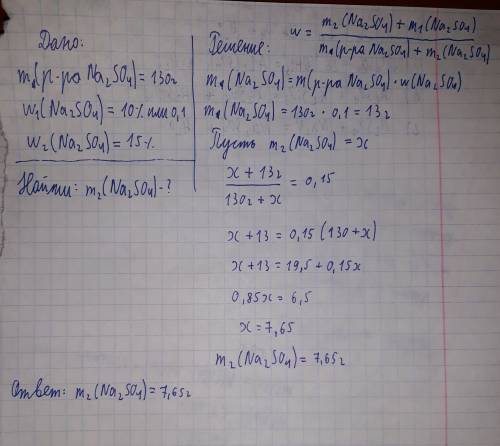 Дано:
m₁(р-ра Na₂SO₄) = 130г
w₁(Na₂SO₄) = 10% или 0,1
w₂(Na₂SO₄) = 15%
Найти: m₂(Na₂SO₄) - ?
Решение:
w = (m₂(Na₂SO₄) + m₁(Na₂SO₄)) / (m₁(р-ра Na₂SO₄) + m₂(Na₂SO₄)
m₁(Na₂SO₄) = m(р-ра Na₂SO₄) · w(Na₂SO₄)
m₁(Na₂SO₄) = 130г · 0,1 = 13г
Пусть m₂(Na₂SO₄) = x
(x + 13г) / (130г + x) = 0,15
x + 13 = 0,15 (130 + x)
x + 13 = 19,5 + 0,15x
0,85x = 6,5
x = 7,65
m₂(Na₂SO₄) = 7,65г
Ответ: m₂(Na₂SO₄) = 7,65г